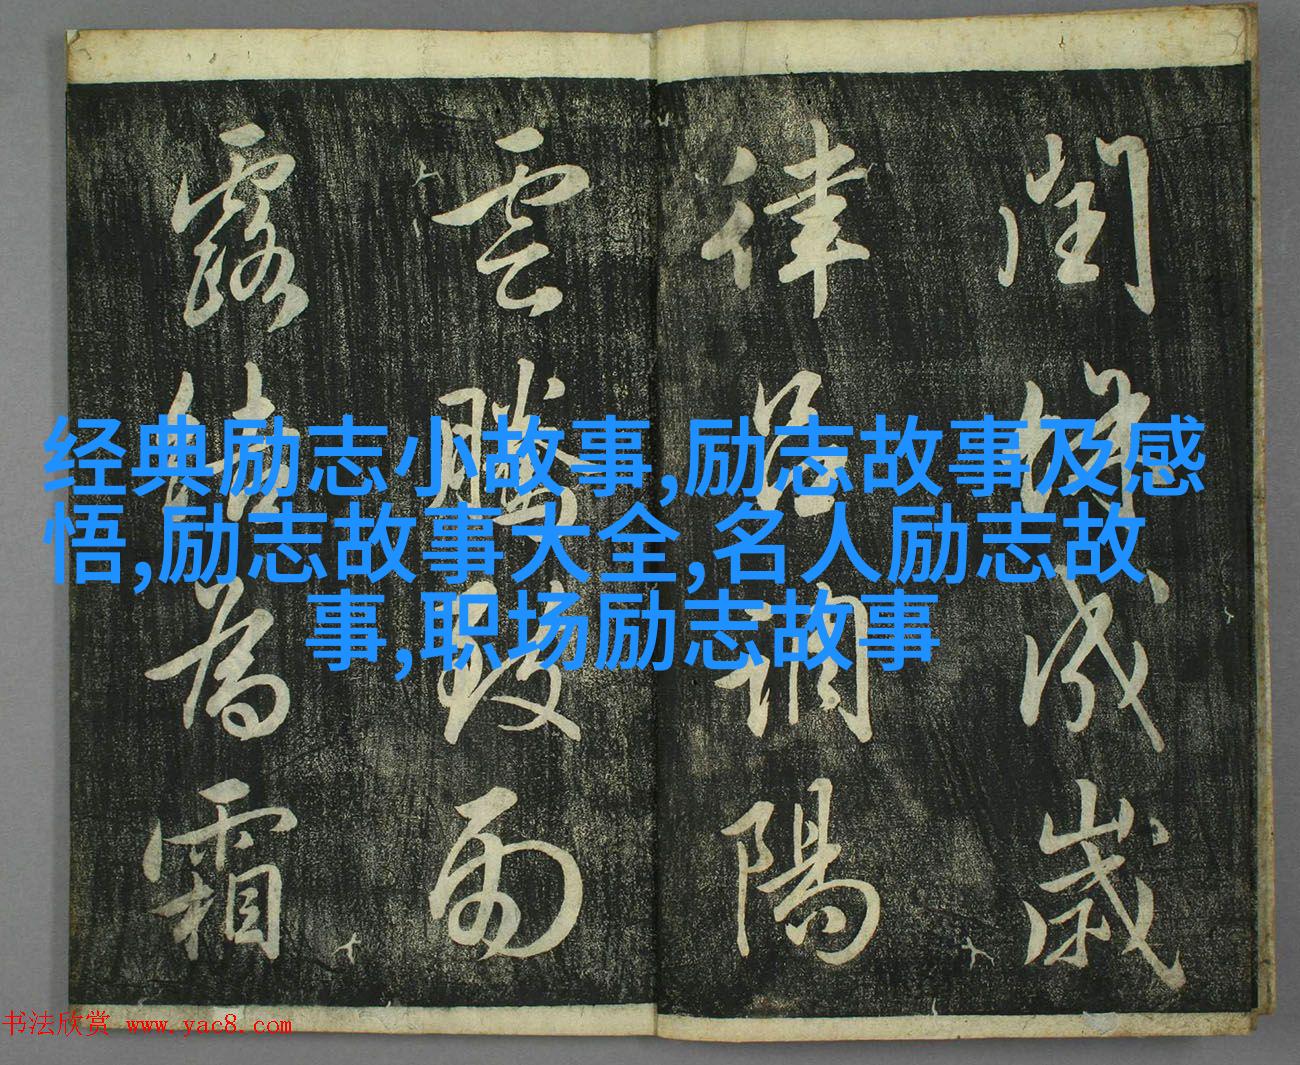 閏餘成歲
律呂調陽
雲騰致雨
露結為霜
经典励志小故事,励志故事及感
悟,励志故事大全,名人励志故
事,职场励志故事
书法欣赏 www.yac8.com